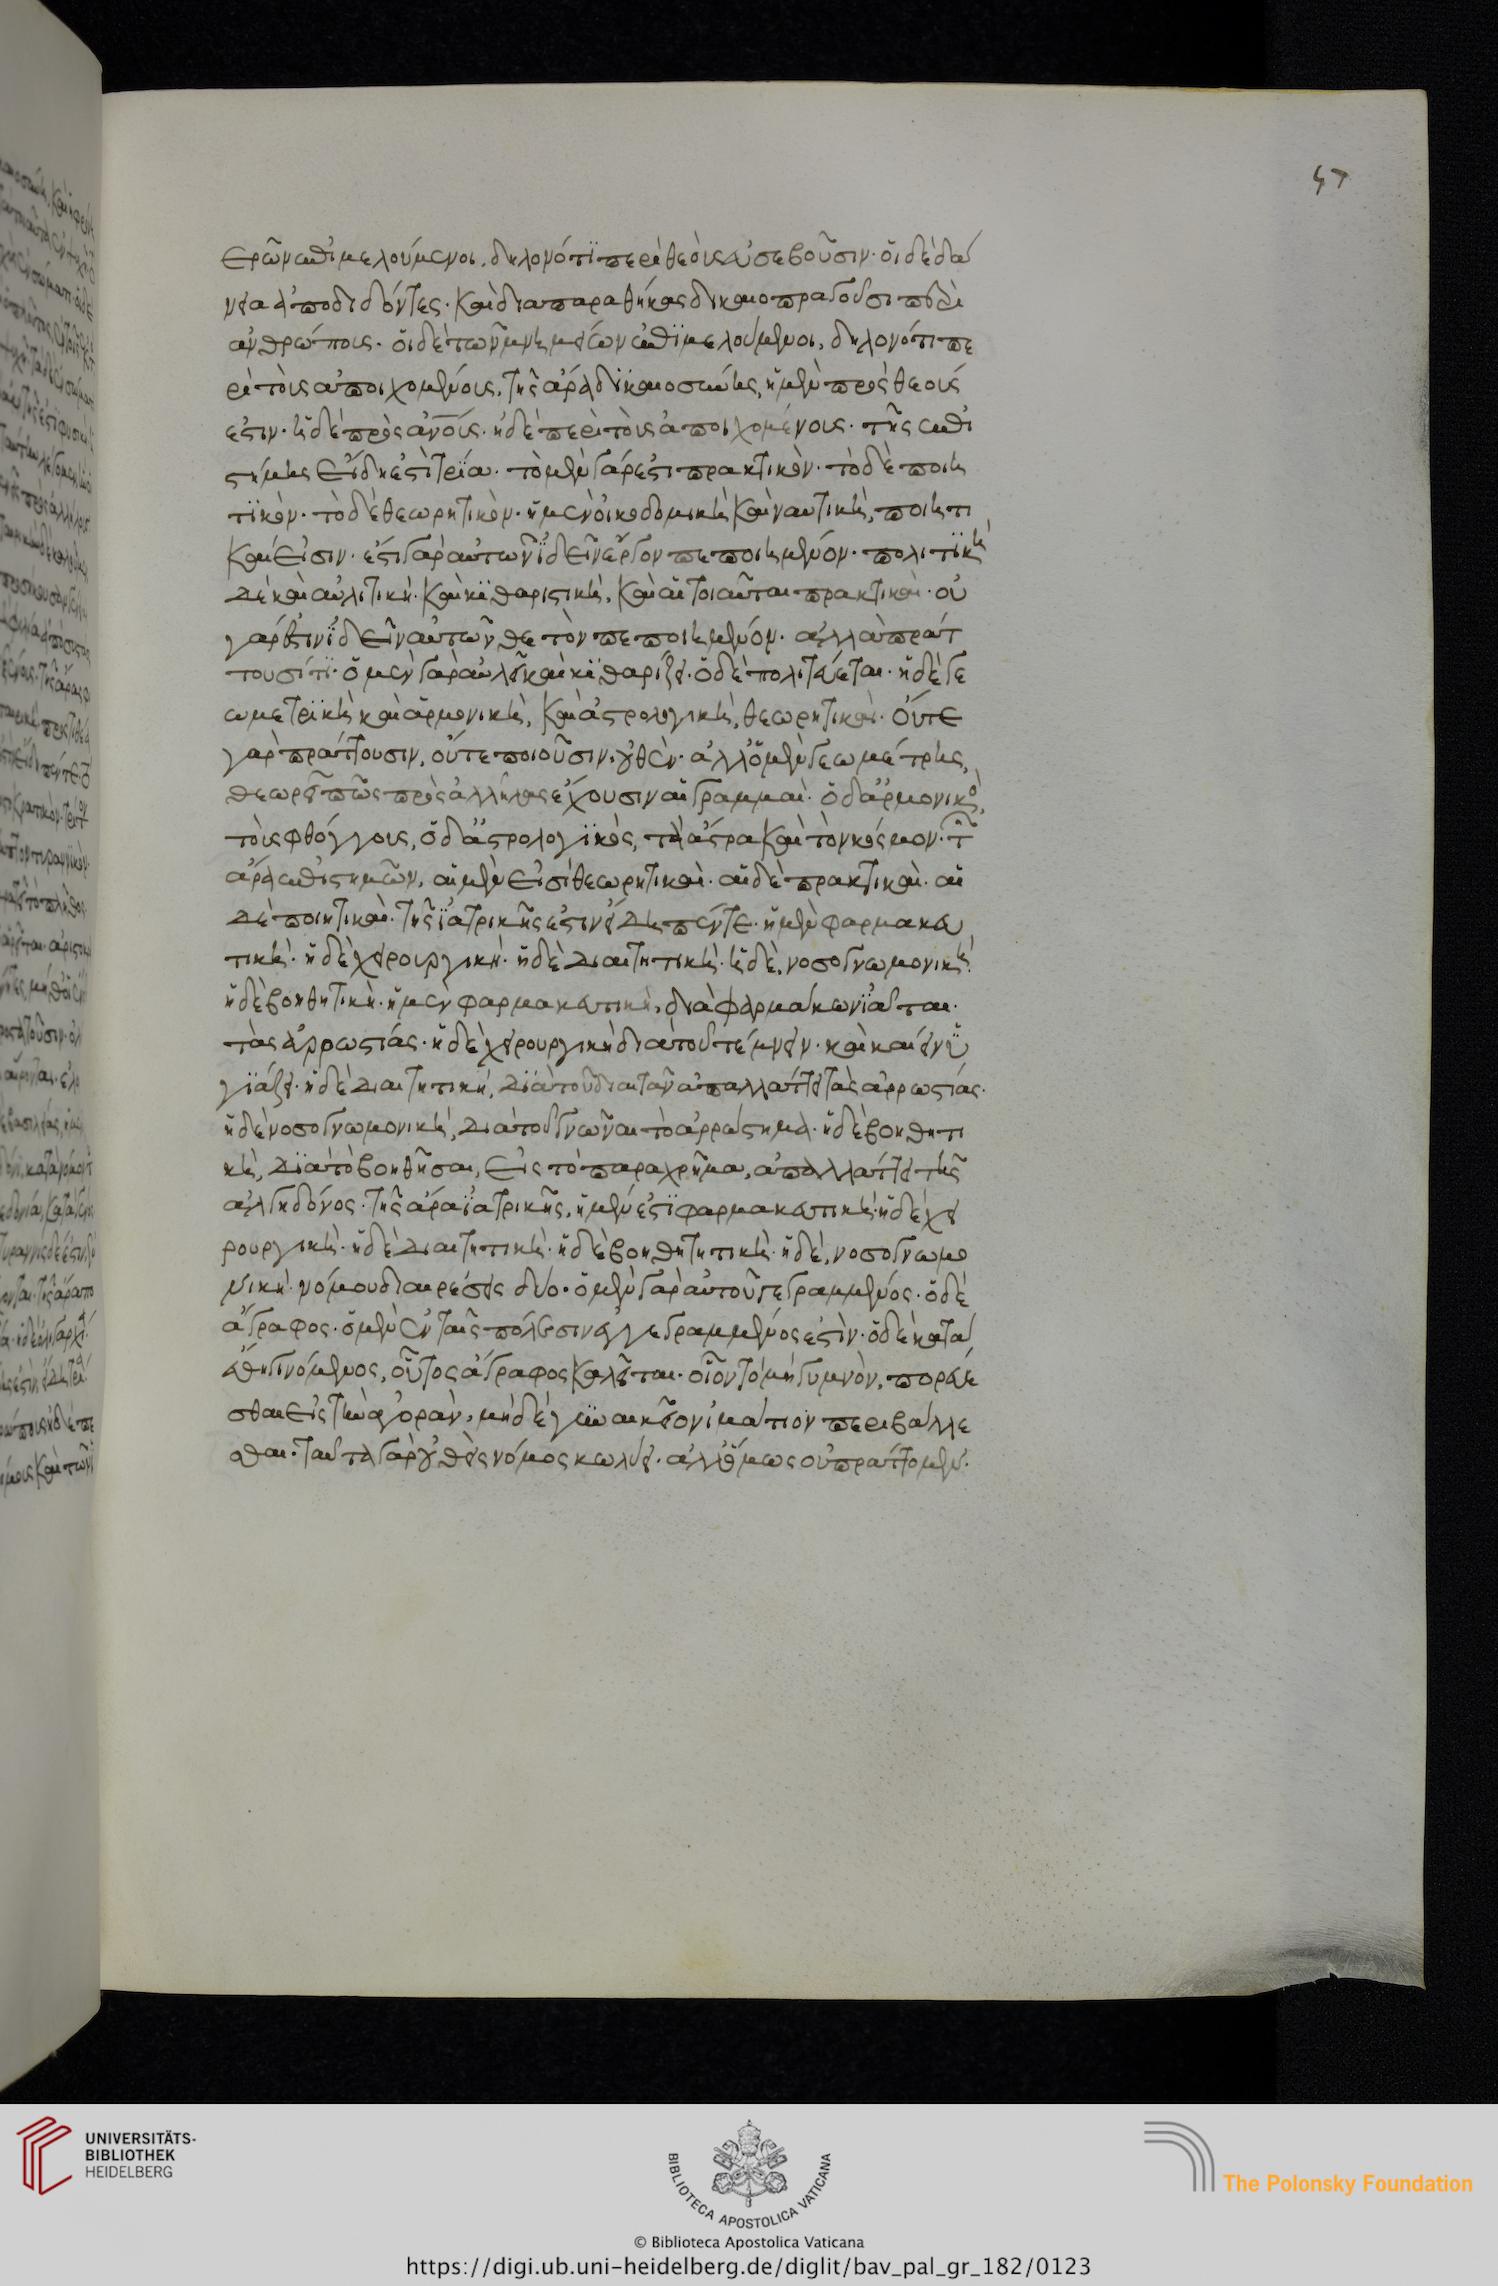 47
ερῶν ἐπιμελούμενοι, δηλονότι περὶ θεοὺς εὐσεβοῦσιν· οἱ δὲ δά
νεια ἀποδιδόντες· καὶ διαπαραθήκας δικαιοπραγοῦσι περὶ
ἀνθρώπους· οἱ δὲ τῶν μνημείων ἐπιμελούμενοι, δηλονότι πε
ρὶ τοὺς ἀποιχομένους, τῆς ἄρα δικαιοσύνης, ἡ μὲν πρὸς θεούς
ἐστιν· ἡ δὲ πρὸς ἀνους· ἡ δὲ περὶ τοὺς ἀποιχομένους· τῆς ἐπι
στήμης εἴδη ἐστὶ τρία· τὸ μὲν γάρ ἐστι πρακτικὸν· τὸ δὲ ποιη
τικὸν· τὸ δὲ θεωρητικὸν· ἡ μὲν οἰκοδομικὴ καὶ ναυτικὴ, ποιητι
καί εἰσιν· ἔστι γὰρ αὐτῶν ἰδεῖν ἔργον πεποιημένον· πολιτικὴ
δὲ καὶ αὐλιτικὴ· καὶ κιθαριστικὴ, καὶ αἱ τοιαῦται πρακτικαὶ· οὐ
γάρ ἐστιν ἰδεῖν αὐτῶν θετὸν πεποιημένον· ἀλλὰ πράτ
τουσί τι· ὁ μὲν γὰρ αὐλεῖ καὶ κιθαρίζει· ὁ δὲ πολιτεύεται· ἡ δὲ γε
ωμετρικὴ καὶ ἁρμονικὴ, καὶ ἀστρολογικὴ, θεωρητικαὶ· οὔτε
γὰρ πράττουσιν, οὔτε ποιοῦσιν οὐθὲν· ἀλλ' ὁ μὲν γεωμέτρης,
θεωρεῖ πῶς πρὸς ἀλλήλας ἔχουσιν αἱ γραμμαὶ· ὁ δ' ἁρμονικὸς,
τοὺς φθόγγους, ὁ δ' ἀστρολογικὸς, τὰ ἄστρα καὶ τὸν κόσμον· τῶν
ἄρα ἐπιστημῶν, αἱ μὲν εἰσὶ θεωρητικαὶ· αἱ δὲ πρακτικαὶ· αἱ
δὲ ποιητικαὶ· τῆς ἰατρικῆς ἐστιν εἴδη πέντε· ἡ μὲν φαρμακευ
τικὴ· ἡ δὲ χειρουργικὴ· ἡ δὲ διαιτητικὴ· ἡ δὲ, νοσογνωμονικὴ·
ἡ δὲ βοηθητικὴ· ἡ μὲν φαρμακευτικὴ, διὰ φαρμάκων ἰᾶται
τὰς ἀρρωστίας· ἡ δὲ χειρουργικὴ διὰ τοῦ τέμνειν· καὶ καίειν ὑ
γιάζει· ἡ δὲ διαιτητικὴ, διὰ τοῦ διαιτᾶν ἀπαλλάττει τὰς ἀρρωστίας·
ἡ δὲ νοσογνωμονικὴ, διὰ τοῦ γνῶναι τὸ ἀρρώστημα· ἡ δὲ βοηθητι
κὴ, διὰ τὸ βοηθῆσαι, εἰς τὸ παραχρῆμα, ἀπαλλάττει τῆς
ἀλγηδόνος· τῆς ἄρα ἰατρικῆς, ἡ μέν ἐστι φαρμακευτικὴ· ἡ δὲ χει
ρουργικὴ· ἡ δὲ διαιτητικὴ· ἡ δὲ βοηθητητικὴ· ἡ δὲ, νοσογνωμο
νικὴ· νόμου διαιρέσεις δύο· ὁ μὲν γὰρ αὐτοῦ γεγραμμένος· ὁ δὲ
ἄγραφος· ὁ μὲν ἐν ταῖς πόλεσιν εγγεγραμμένος ἐστὶν· ὁ δὲ κατὰ
ἔθη γινόμενος, οὗτος ἄγραφος καλεῖται· οἷον τὸ μὴ γυμνὸν, πορεύε
σθαι εἰς τὴν ἀγορὰν, μὴ δὲ γυναικεῖον ἱμάτιον περιβάλλε
σθαι· ταῦτα γὰρ οὐθεὶς νόμος κωλύει· ἀλλ' ὅμως οὐ πράττομεν·
UNIVERSITÄTS-
BIBLIOTHEK
HEIDELBERG
BIBLIOTECA APOSTOLICA VATICANA
The Polonsky Foundation
© Biblioteca Apostolica Vaticana
https://digi.ub.uni-heidelberg.de/diglit/bav_pal_gr_182/0123